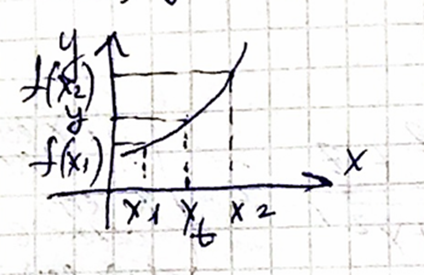 y
f(x₂)
y
f(x₁)
x
x₁ x_t x₂